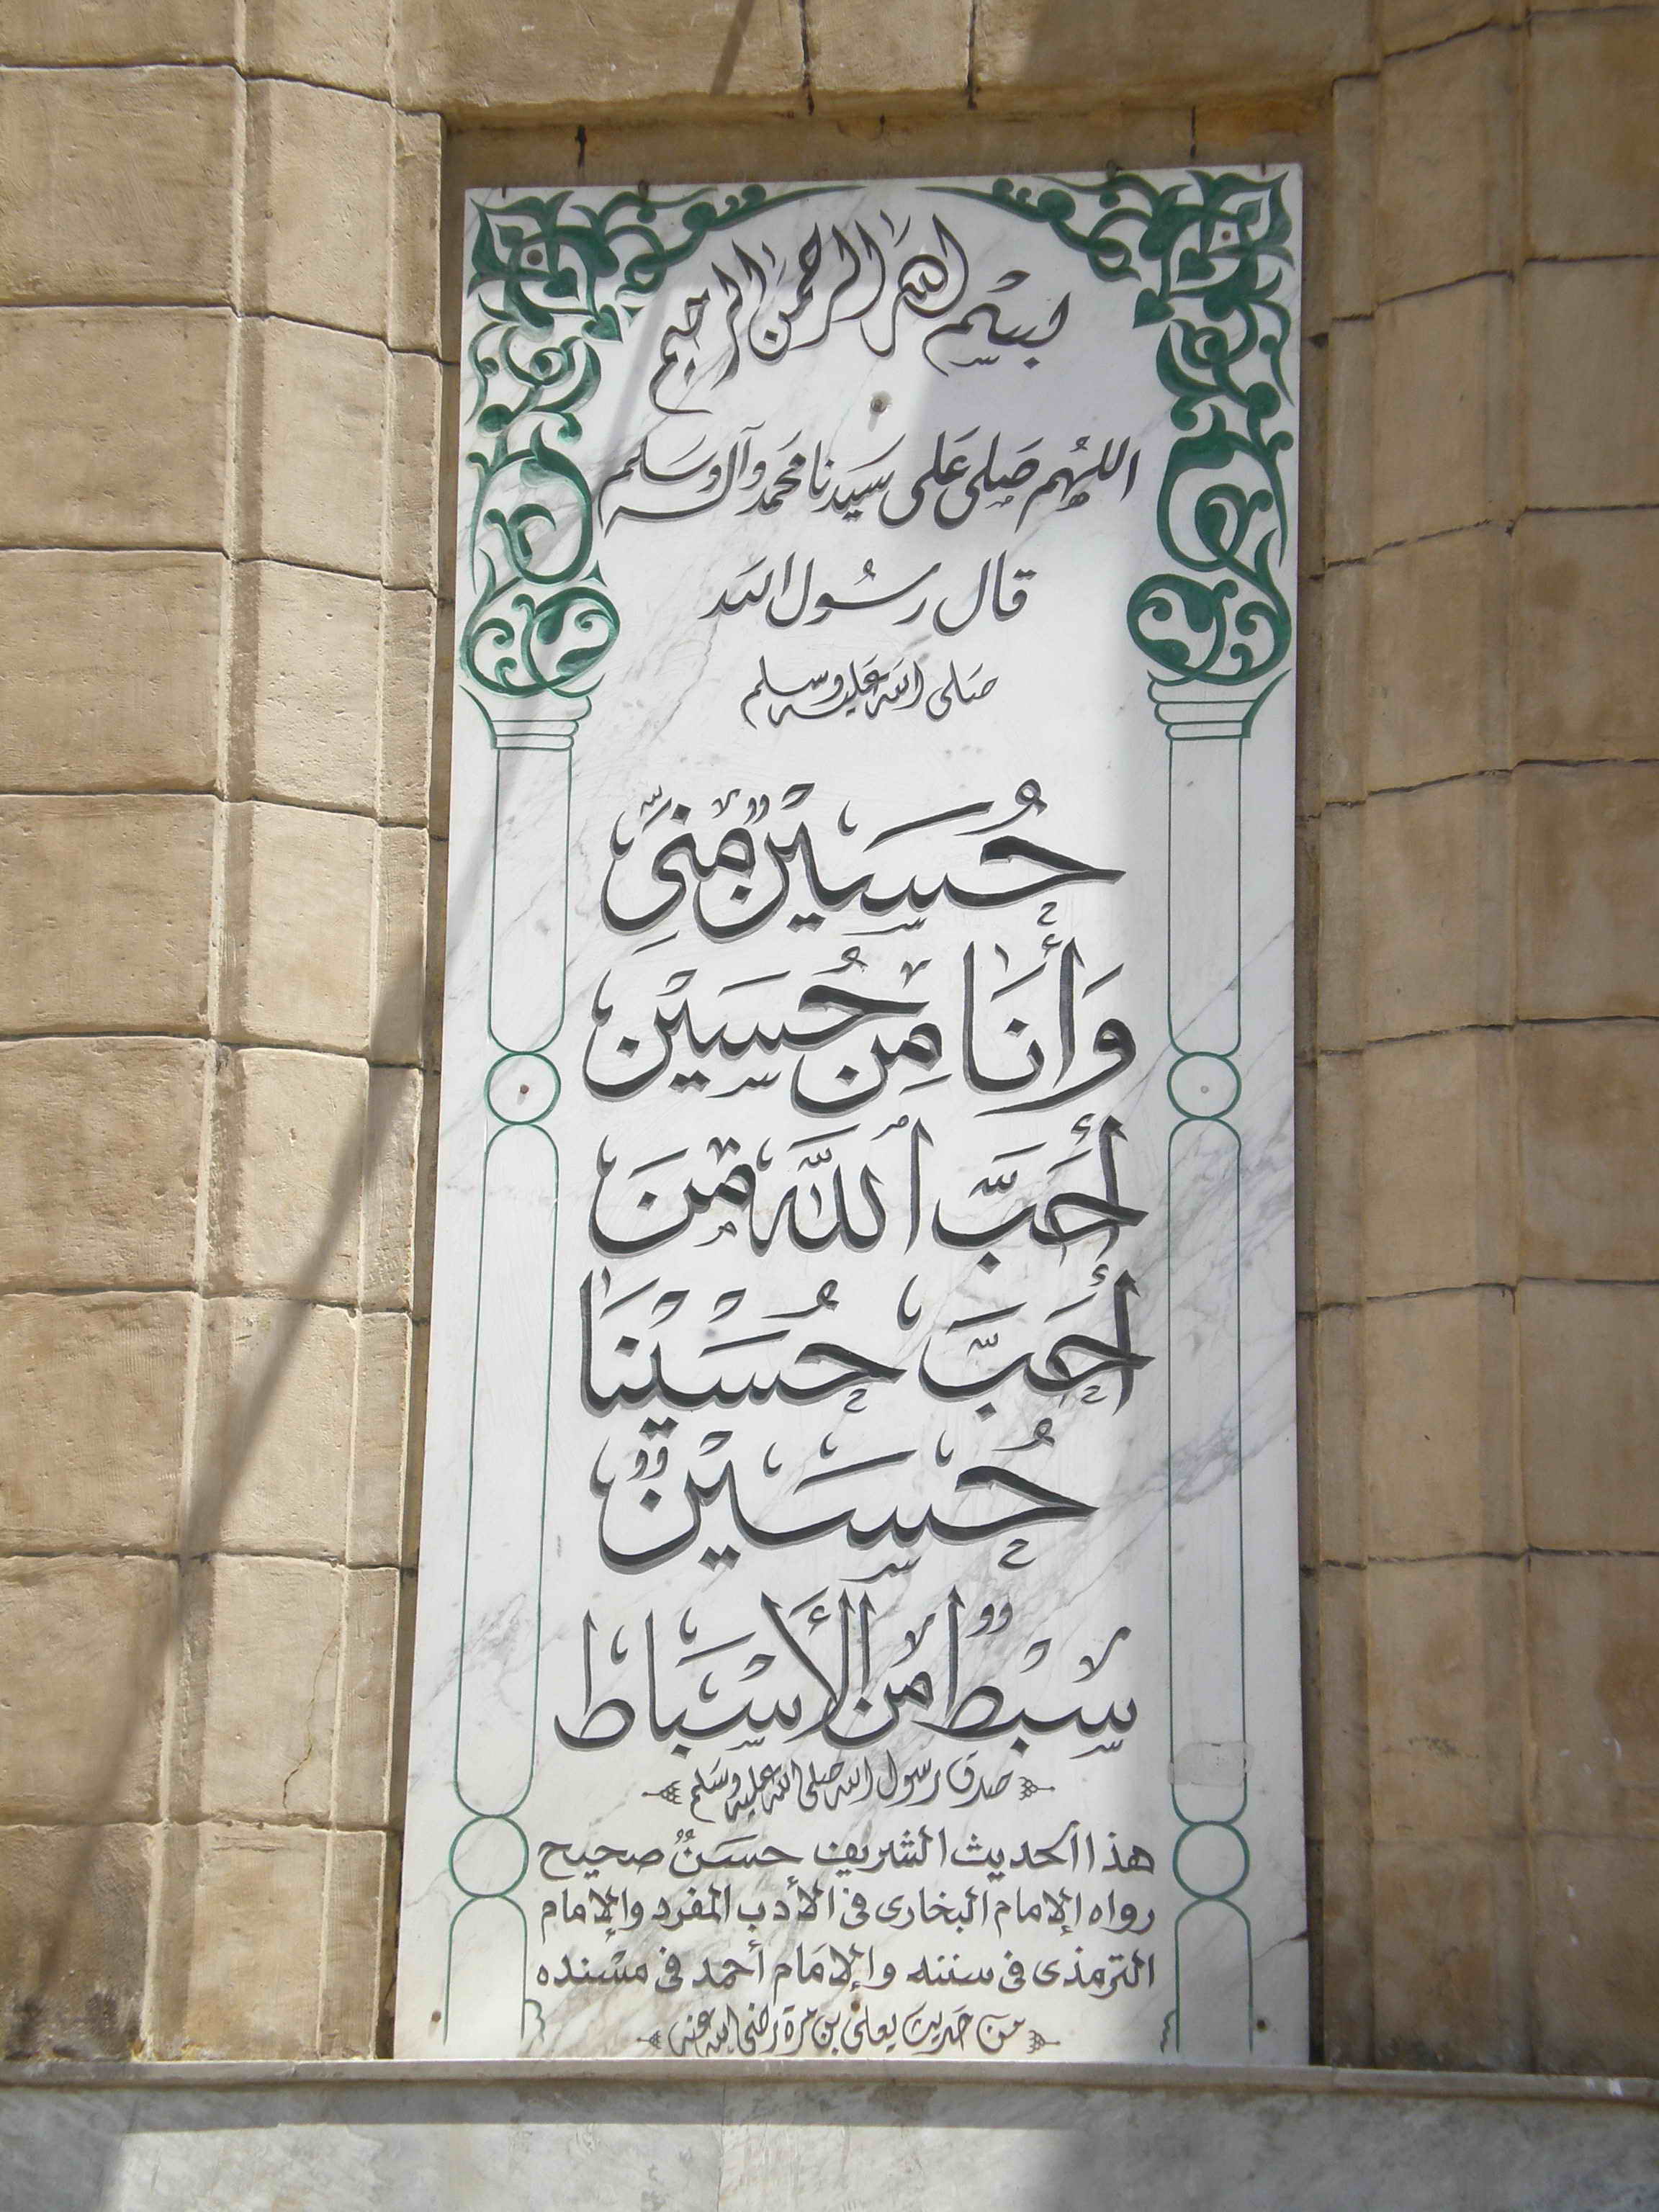 بسم الله الرحمن الرحيم
اللهم صلى على سيدنا محمد وآله وسلم
قال رسول الله
صلى الله عليه وسلم
حُسَيْنٌ مِنِّي
وَأَنَا مِنْ حُسَيْنٍ
أَحَبَّ ٱللَّهُ مَنْ
أَحَبَّ حُسَيْنَا
حُسَيْنٌ
سِبْطٌ مِنَ الأَسْبَاط
صدق رسول الله صلى الله عليه وسلم
هذا الحديث الشريف حسنٌ صحيح
رواه الإمام البخارى فى الأدب المفرد والإمام
الترمذى فى سننه والإمام أحمد فى مسنده
من حديث يعلى بن مرة رضى الله عنه